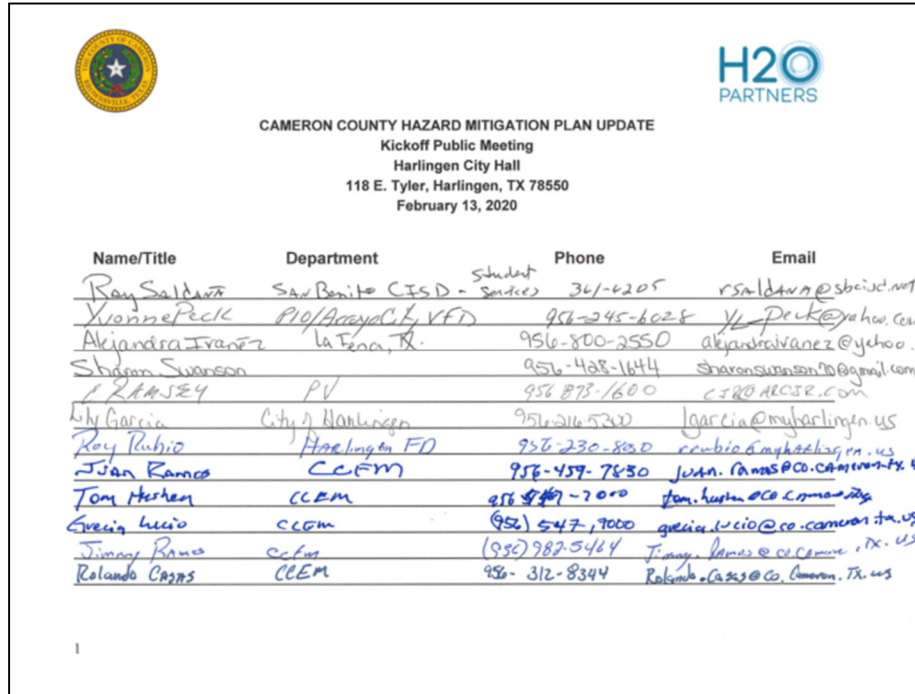 THE COUNTY OF CAMERON
BROWNSVILLE, TEXAS
H2O
PARTNERS
CAMERON COUNTY HAZARD MITIGATION PLAN UPDATE
Kickoff Public Meeting
Harlingen City Hall
118 E. Tyler, Harlingen, TX 78550
February 13, 2020
Name/Title Department Phone Email
Ray Saldaña San Benito CISD - Student Services 361-6205 rsaldana@sbcisd.net
Yvonne Peck PIO/Arroyo City VFD 956-245-6028 yl_peck@yahoo.com
Alejandra Ivanez La Feria, TX. 956-800-2550 alejandraivanez@yahoo.
Sharon Swanson 956-428-1644 sharonswanson70@gmail.com
RAMSEY PV 956 873-1600 CJR@ARCJR.COM
Lily Garcia City of Harlingen 956-216-5300 lgarcia@myharlingen.us
Roy Rubio Harlingen FD 956-230-8030 rrubio@myharlingen.us
Juan Ramos CCEM 956-459-7830 juan.ramos@co.cameron.tx.
Tom Hushen CCEM 956 -7000
Grecia Lucio CCEM (956) 547, 7000 grecia.lucio@co.cameron.tx.us
Jimmy Ramos CCEM (956) 982-5464
Rolando Casas CCEM 956-312-8344 Rolando.Casas@Co.Cameron.TX.us
1